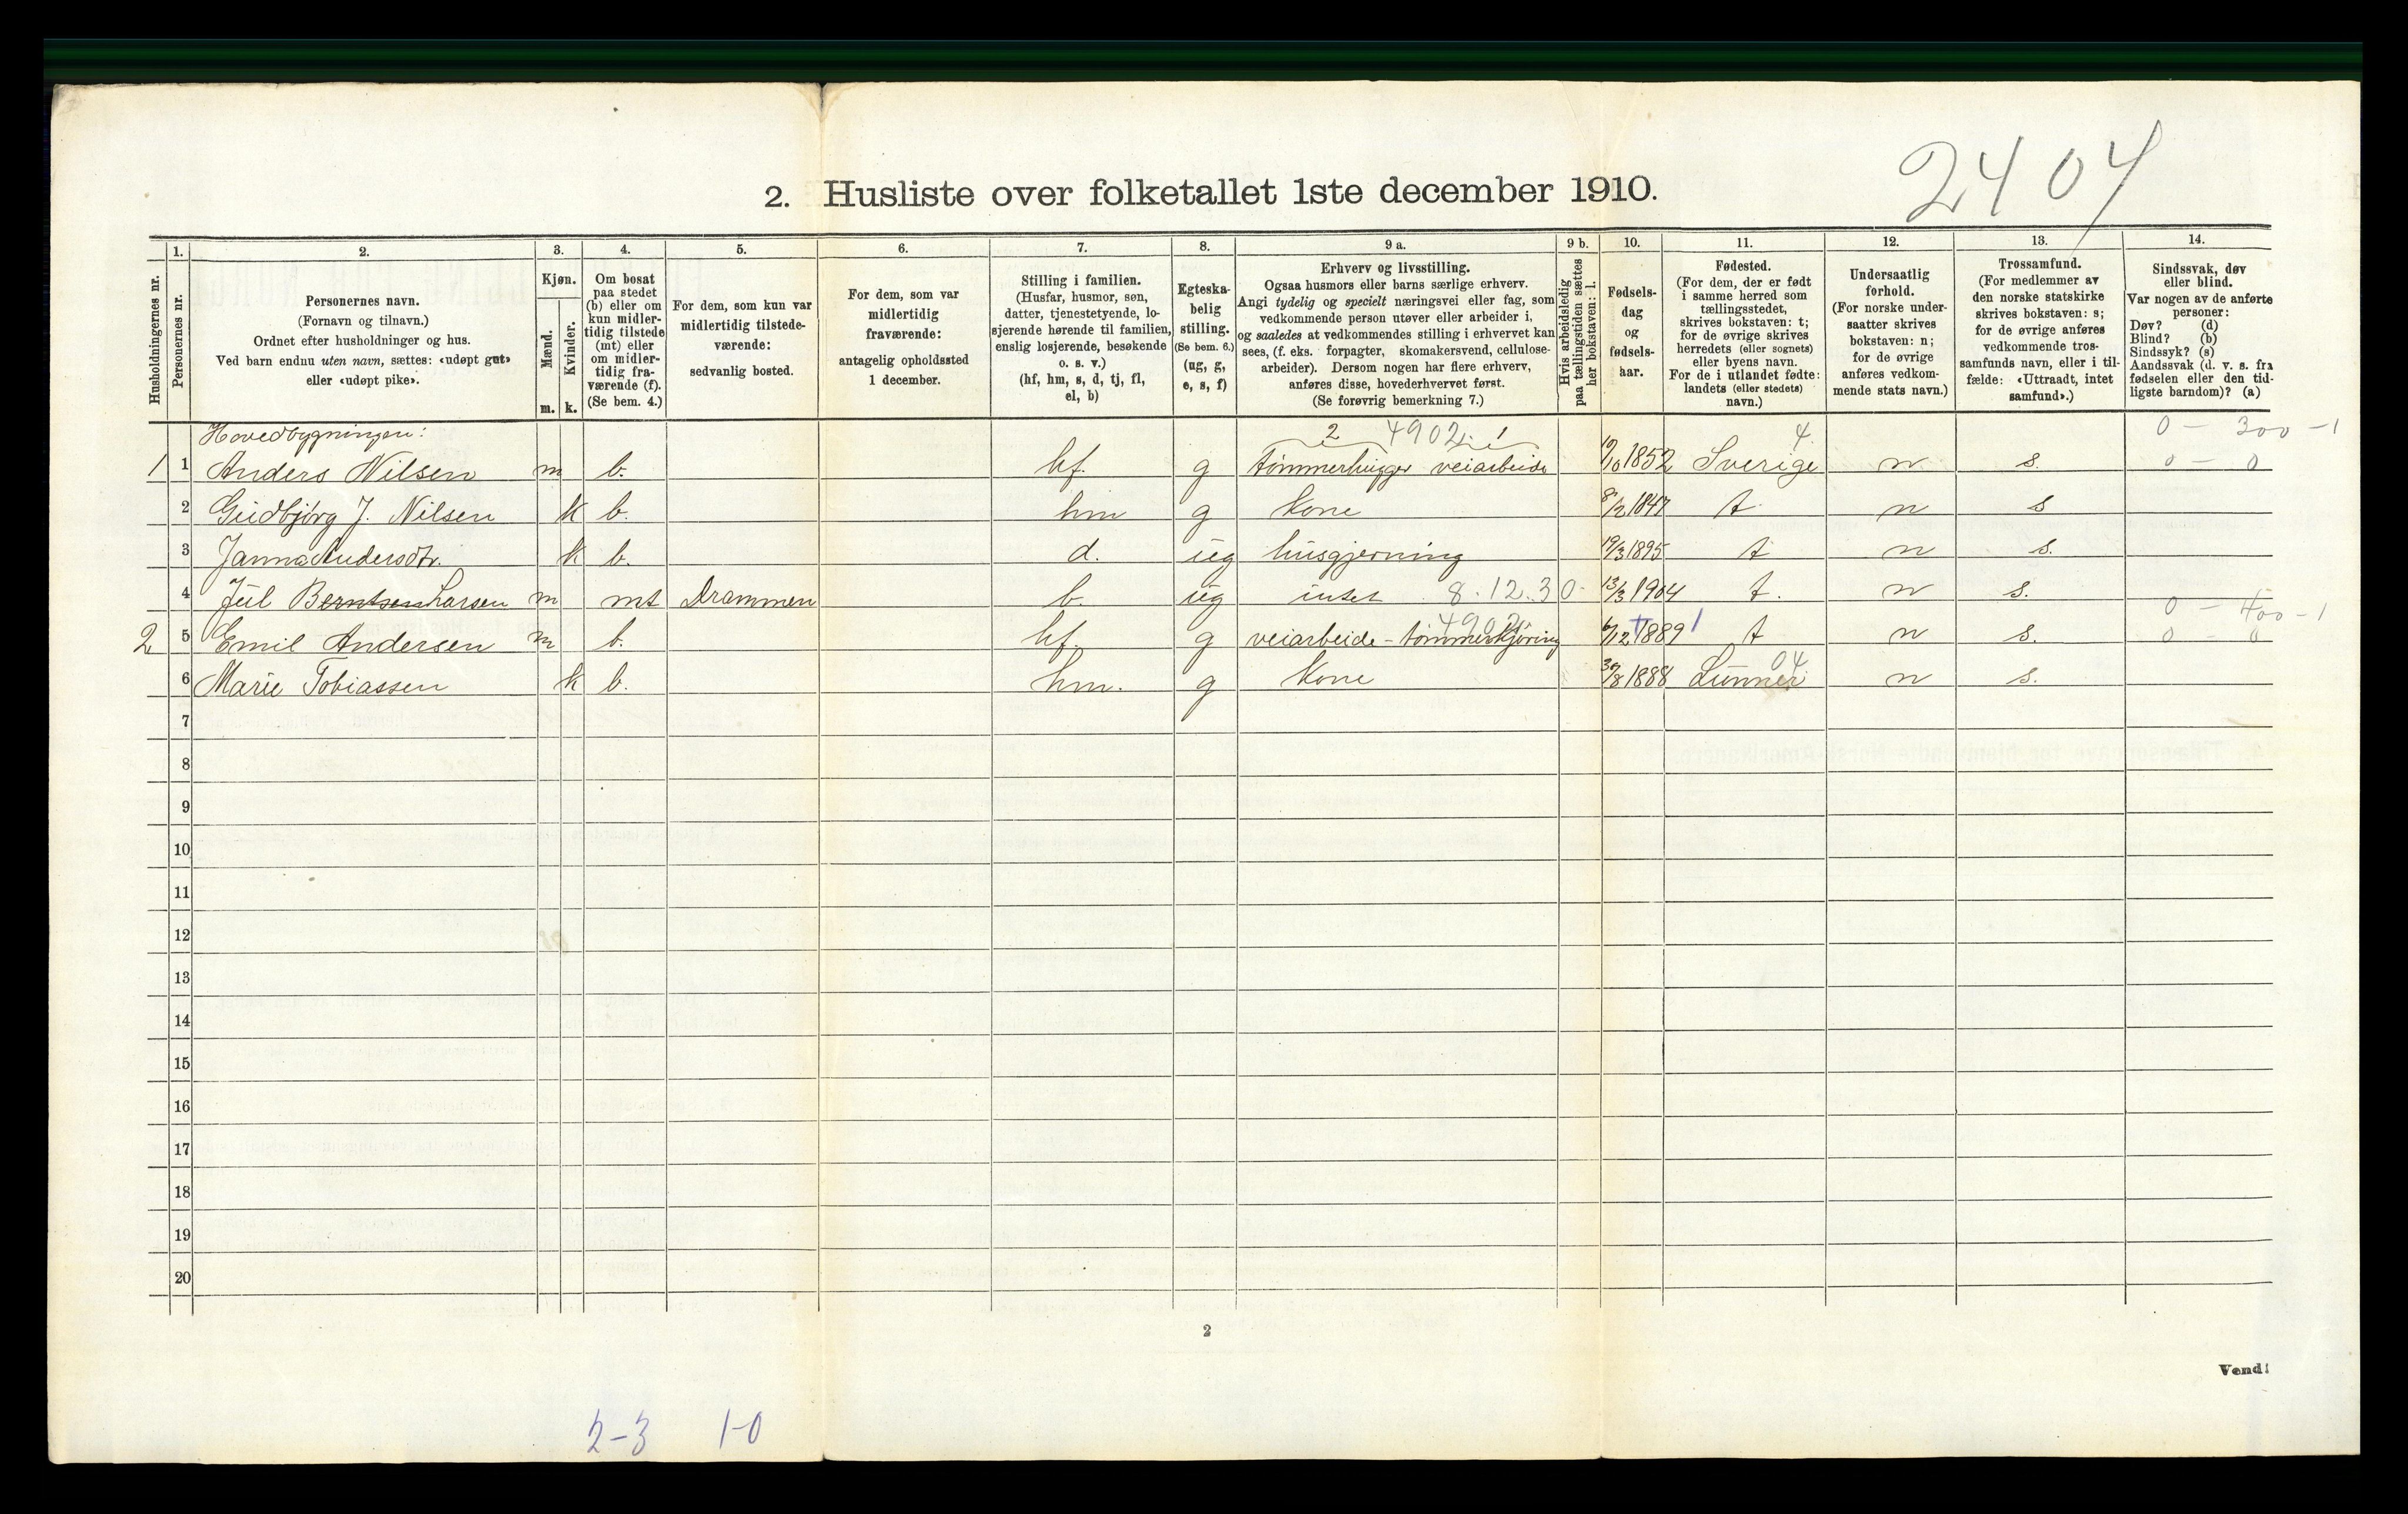 2404
2. Husliste over folketallet 1ste december 1910.
Husholdningernes nr.
1. Personernes nr.
2. Personernes navn. (Fornavn og tilnavn.) Ordnet efter husholdninger og hus. Ved barn endnu uten navn, sættes: «udøpt gut» eller «udøpt pike».
3. Kjøn. Mænd. m. Kvinder. k.
4. Om bosat paa stedet (b) eller om kun midler-tidig tilstede (mt) eller om midler-tidig fra-værende (f). (Se bem. 4.)
5. For dem, som kun var midlertidig tilstede-værende: sedvanlig bosted.
6. For dem, som var midlertidig fraværende: antagelig opholdssted 1 december.
7. Stilling i familien. (Husfar, husmor, søn, datter, tjenestetyende, lo-sjerende hørende til familien, enslig losjerende, besøkende o. s. v.) (hf, hm, s, d, tj, fl, el, b)
8. Egteska-belig stilling. (Se bem. 6.) (ug, g, e, s, f)
9 a. Erhverv og livsstilling. Ogsaa husmors eller barns særlige erhverv. Angi tydelig og specielt næringsvei eller fag, som vedkommende person utøver eller arbeider i, og saaledes at vedkommendes stilling i erhvervet kan sees, (f. eks. forpagter, skomakersvend, cellulose-arbeider). Dersom nogen har flere erhverv, anføres disse, hovederhvervet først. (Se forøvrig bemerkning 7.)
9 b. Hvis arbeidsledig paa tællingstiden sættes her bokstaven: l.
10. Fødsels-dag og fødsels-aar.
11. Fødested. (For dem, der er født i samme herred som tællingsstedet, skrives bokstaven: t; for de øvrige skrives herredets (eller sognets) eller byens navn. For de i utlandet fødte: landets (eller stedets) navn.)
12. Undersaatlig forhold. (For norske under-saatter skrives bokstaven: n; for de øvrige anføres vedkom-mende stats navn.)
13. Trossamfund. (For medlemmer av den norske statskirke skrives bokstaven: s; for de øvrige anføres vedkommende tros-samfunds navn, eller i til-fælde: «Uttraadt, intet samfund».)
14. Sindssvak, døv eller blind. Var nogen av de anførte personer: Døv? (d) Blind? (b) Sindssyk? (s) Aandssvak (d. v. s. fra fødselen eller den tid-ligste barndom)? (a)
Hovedbygningen: 2 4902 1 4 0 - 300 - 1
1 1 Anders Nilsen m b. hf. g tømmerhugger veiarbeide 1852 Sverige n s. 0 - 0
2 Gudbjørg J. Nilsen k b. hm g kone 1847 t n s
3 Janna Andersdtr. k b. d. ug husgjerning 19/3 1895 t n s.
4 Jul Berntsen Larsen m mt Drammen b. ug intet 8.12.30 13/3 1904 t. n s.
4902 0 - 400 - 1
2 5 Emil Andersen m b. hf. g veiarbeide - tømmerkjøring 6/12 1889 t n s. 0 - 0
04
6 Marie Tobiassen k b. hm. g kone 30/8 1888 Lunner n s.
7
8
9
10
11
12
13
14
15
16
17
18
19
20
2
Vend!
2-3 1-0